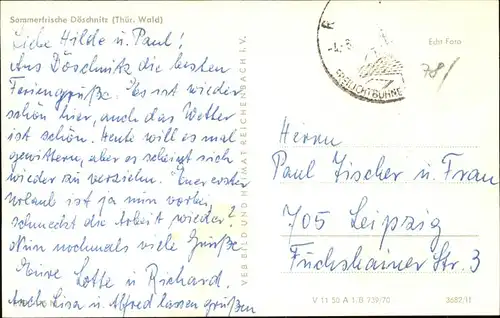 Sommerfrische Döschnitz (Thür. Wald)
Liebe Hilde u. Paul!
Aus Döschnitz die besten
Feriengrüße. Es ist wieder
schön hier, auch das Wetter
ist schön. Heute will es mal
gewittern, aber es scheint sich
wieder zu verziehn. Euer erster
Urlaub ist ja nun vorbei,
schmeckt die Arbeit wieder?
Nun nochmals viele Grüße
Eure Lotte u. Richard.
Auch Lisa u. Alfred lassen grüßen
VEB BILD UND HEIMAT REICHENBACH I. V.
FREILICHTBÜHNE
Echt Foto
781
Herrn
Paul Fischer u. Frau
705 Leipzig
Fuchshainer Str. 3
V 11 50 A 1.B 739/70
3682/11